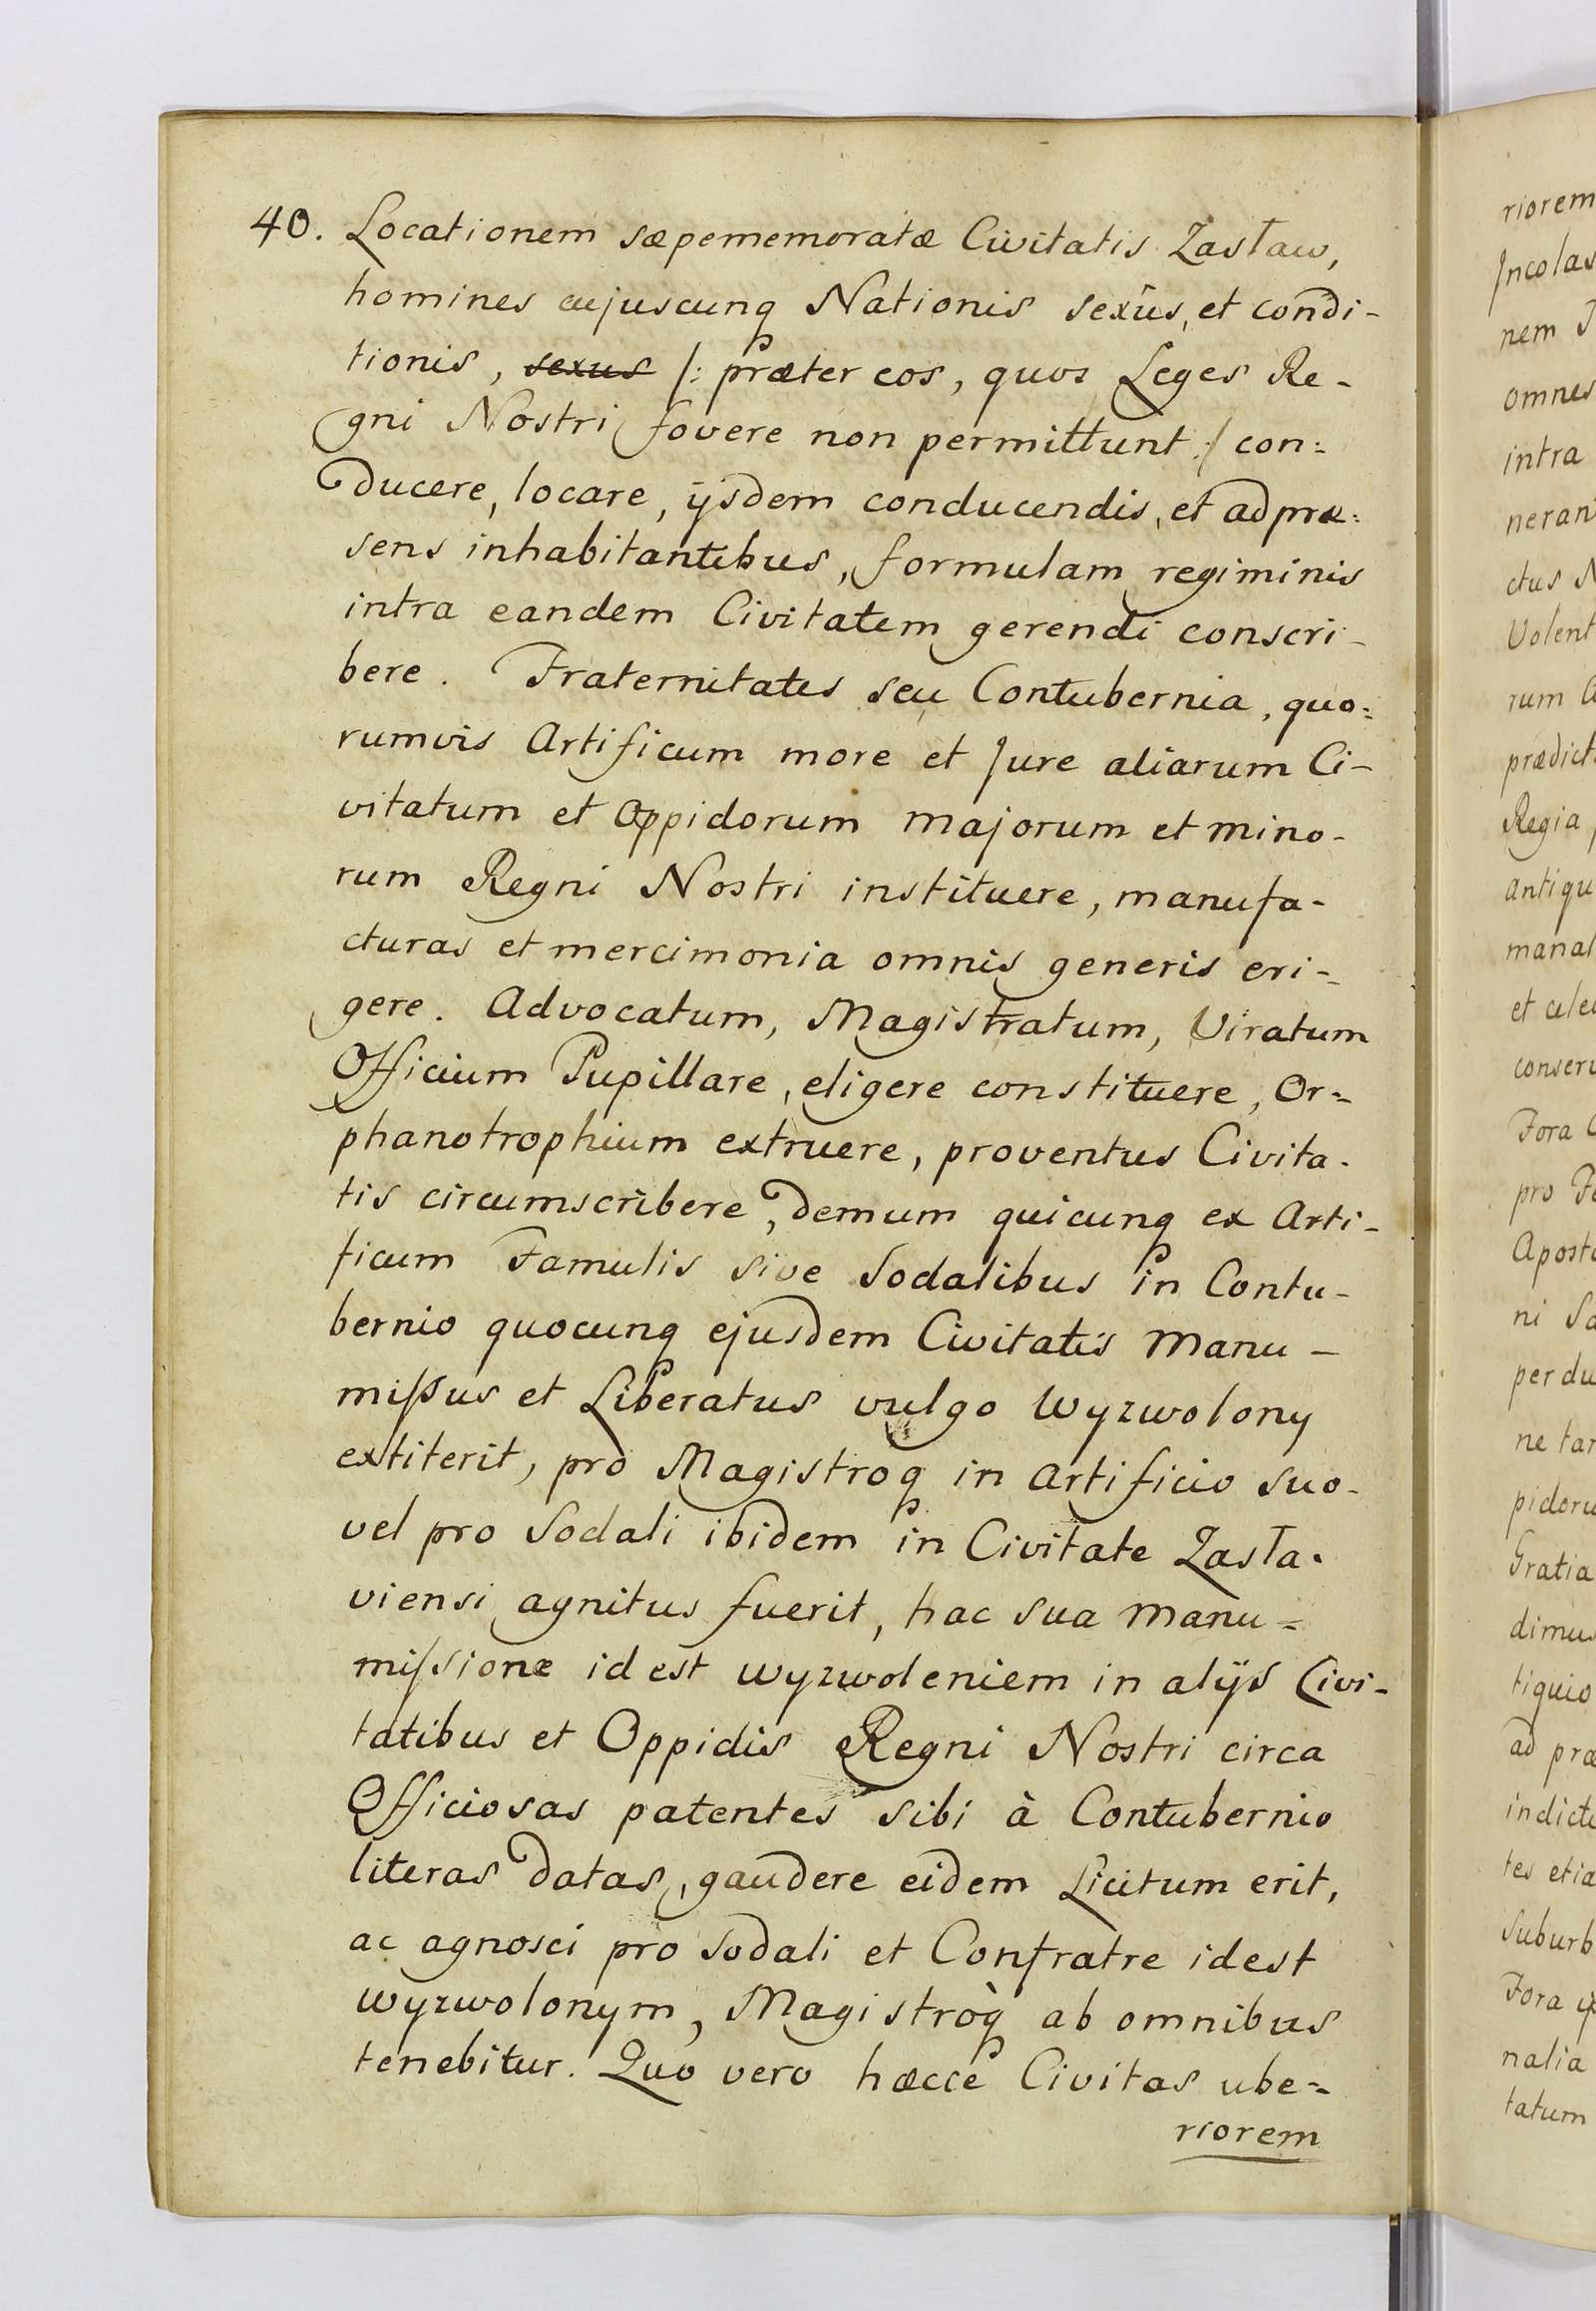 40. Locationem sæpememoratæ Civitatis Zasław,
homines cujuscunq Nationis sexûs, et condi-
tionis, sexus /: præter eos, quos Leges Re-
gni Nostri fovere non permittunt :/ con=
ducere, locare, ijsdem conducendis, et ad præ=
sens inhabitantibus, formulam regiminis
intra eandem Civitatem gerendi conscri-
bere. Fraternitates seu Contubernia, quo=
rumvis Artificum more et Jure aliarum Ci-
vitatum et Oppidorum majorum et mino-
rum Regni Nostri instituere, manufa-
cturas et mercimonia omnis generis eri-
gere. Advocatum, Magistratum, Viratum
Officium Pupillare, eligere constituere, Or=
phanotrophium extruere, proventus Civita-
tis circumscribere, demum quicunq ex Arti-
ficum Famulis sive Sodalibus in Contu-
bernio quocunq ejusdem Civitatis Manu-
missus et Liberatus vulgo Wyzwolony
extiterit, pro Magistroq in Artificio suo-
vel pro Sodali ibidem in Civitate Zasła-
viensi agnitus fuerit, hac sua Manu=
missione id est wyzwoleniem in alijs Civi-
tatibus et Oppidis Regni Nostri circa
Officiosas patentes sibi à Contubernio
literas datas, gaudere eidem Licitum erit,
ac agnosci pro Sodali et Confratre id est
wyzwolonym, Magistròq ab omnibus
tenebitur. Quo vero hæcce Civitas ube=
riorem
riorem
Incolas
nem
omnes
intra
neran
ctus N
Volent
rum
prædict
Regia
antiqu
manal
et cele
conserv
Fora
pro
Aposto
ni
per du
ne tar
pidoru
Gratia
dimus
tiquio
ad præ
indict
tes etia
Suburb
Fora
nalia
tatum